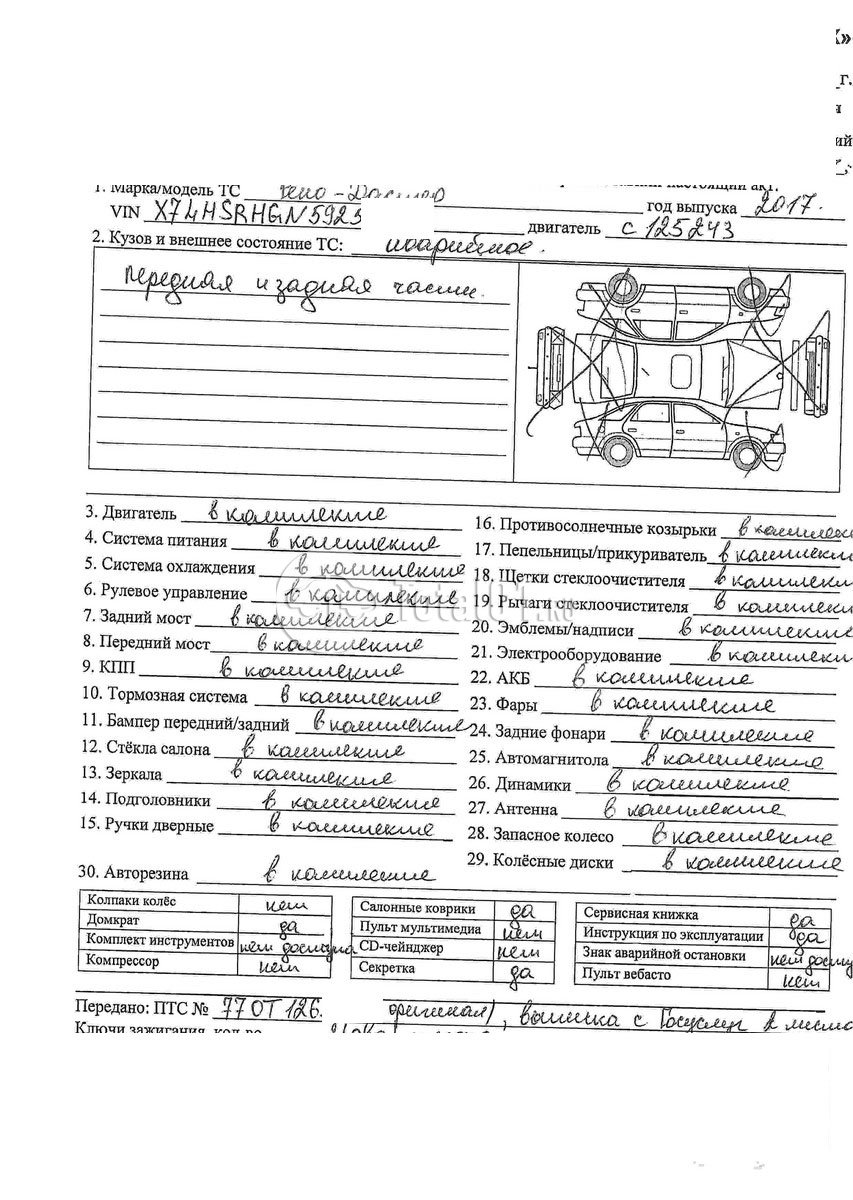 К»
г.
ий
1. Марка/модель ТС Рено - Дастер настоящий акт.
VIN X7LHSRHGN5923 год выпуска 2017.
двигатель С125243
2. Кузов и внешнее состояние ТС: аварийное.
Передняя и задняя части.
3. Двигатель в комплекте
4. Система питания в комплекте
5. Система охлаждения в комплекте
6. Рулевое управление в комплекте
7. Задний мост в комплекте
8. Передний мост в комплекте
9. КПП в комплекте
10. Тормозная система в комплекте
11. Бампер передний/задний в комплекте
12. Стёкла салона в комплекте
13. Зеркала в комплекте
14. Подголовники в комплекте
15. Ручки дверные в комплекте
16. Противосолнечные козырьки в комплек
17. Пепельницы/прикуриватель в комплекте
18. Щетки стеклоочистителя в комплек
19. Рычаги стеклоочистителя в комплек
20. Эмблемы/надписи в комплекте
21. Электрооборудование в комплек
22. АКБ в комплекте
23. Фары в комплекте
24. Задние фонари в комплекте
25. Автомагнитола в комплекте
26. Динамики в комплекте
27. Антенна в комплекте
28. Запасное колесо в комплекте
29. Колёсные диски в комплекте
30. Авторезина в комплекте
total01.RU
Колпаки колёс нет
Домкрат да
Комплект инструментов нет доступа
Компрессор нет
Салонные коврики да
Пульт мультимедиа нет
CD-чейнджер нет
Секретка да
Сервисная книжка да
Инструкция по эксплуатации да
Знак аварийной остановки нет досту
Пульт вебасто нет
Передано: ПТС № 77ОТ126. оригинал), выписка с Госуслуг
Ключи зажигания, кол-во